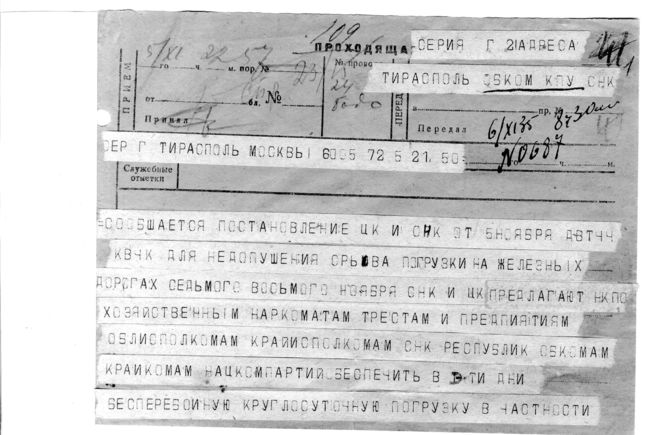 109
ПРОХОДЯЩА
СЕРИЯ Г 21 АДРЕСА
5/XI 22 57
го ч. м. пор. №
№ прово
ТИРАСПОЛЬ ОБКОМ КПУ СНК
ПРИЕМ
от бл. №
ПЕРЕД
пр. №
Принял
Передал
6/XI 35
8 ч 30 мин
СЕР Г ТИРАСПОЛЬ МОСКВЫ 6005 72 5 21 50=
N 0687
ч. м.
Служебные
отметки
=СООБШАЕТСЯ ПОСТАНОВЛЕНИЕ ЦК И СНК ОТ 5НОЯБРЯ ДВТЧЧ
КВЧК ДЛЯ НЕДОПУШЕНИЯ СРЫВА ПОГРУЗКИ НА ЖЕЛЕЗНЫХ
ДОРОГАХ СЕДЬМОГО ВОСЬМОГО НОЯБРЯ СНК И ЦК ПРЕДЛАГАЮТ НКПС
ХОЗЯЙСТВЕННЫМ НАРКОМАТАМ ТРЕСТАМ И ПРЕДПИЯТИЯМ
ОБЛИСПОЛКОМАМ КРАЙИСПОЛКОМАМ СНК РЕСПУБЛИК ОБКОМАМ
КРАЙКОМАМ НАЦКОМПАРТИЙ ОБЕСПЕЧИТЬ В ЭТИ ДНИ
БЕСПЕРЕБОЙНУЮ КРУГЛОСУТОЧНУЮ ПОГРУЗКУ В ЧАСТНОСТИ